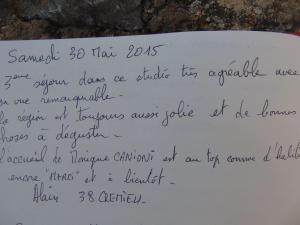 Samedi 30 Mai 2015
3ème séjour dans ce studio très agréable avec
vue remarquable.
la région est toujours aussi jolie et de bonnes
choses à déguster.
l'accueil de Monique CANIONI est au top comme d'habit
encore "MERCI" et à bientôt.
Alain 38 CREMIEU